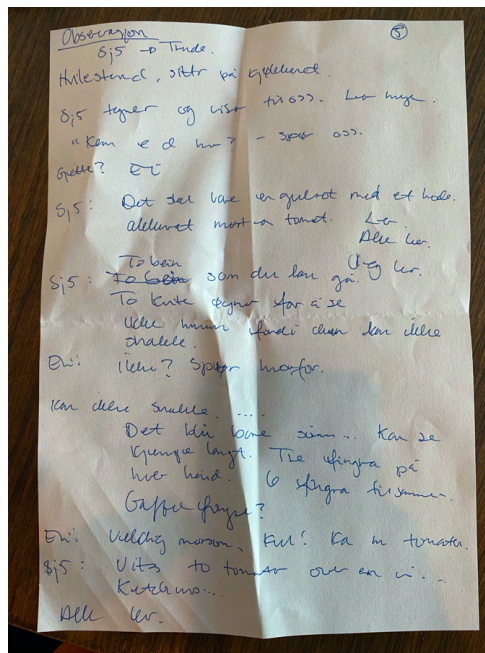 Observasjon
5
Sj5 → Trude.
Hvilestund, sitter på kjøkkenet.
Sj5 tegner og viser til oss. Ler mye.
"Kem e d her? - spør oss.
Grette? Eli
Sj5: Det skal være en gulrot med et hode.
akkurat most-a tomat. Ler
Alle ler.
To bein
Jeg ler.
Sj5: som du kan gå.
To hvite øyner for å se
Ikke munn fordi han kan ikke
snakke.
Eli: ikke? Spør hvorfor.
Kan ikke snakke. ....
Det blir bare sånn... Kan se
kjempe langt. Tre fingra på
hver hånd. 6 fingra tilsammen.
Gaffel
Eli: Veldig morsom. Kul! Ka m tomaten.
Sj5: Vits to tomater over en vi...
Ketchup...
Alle ler.